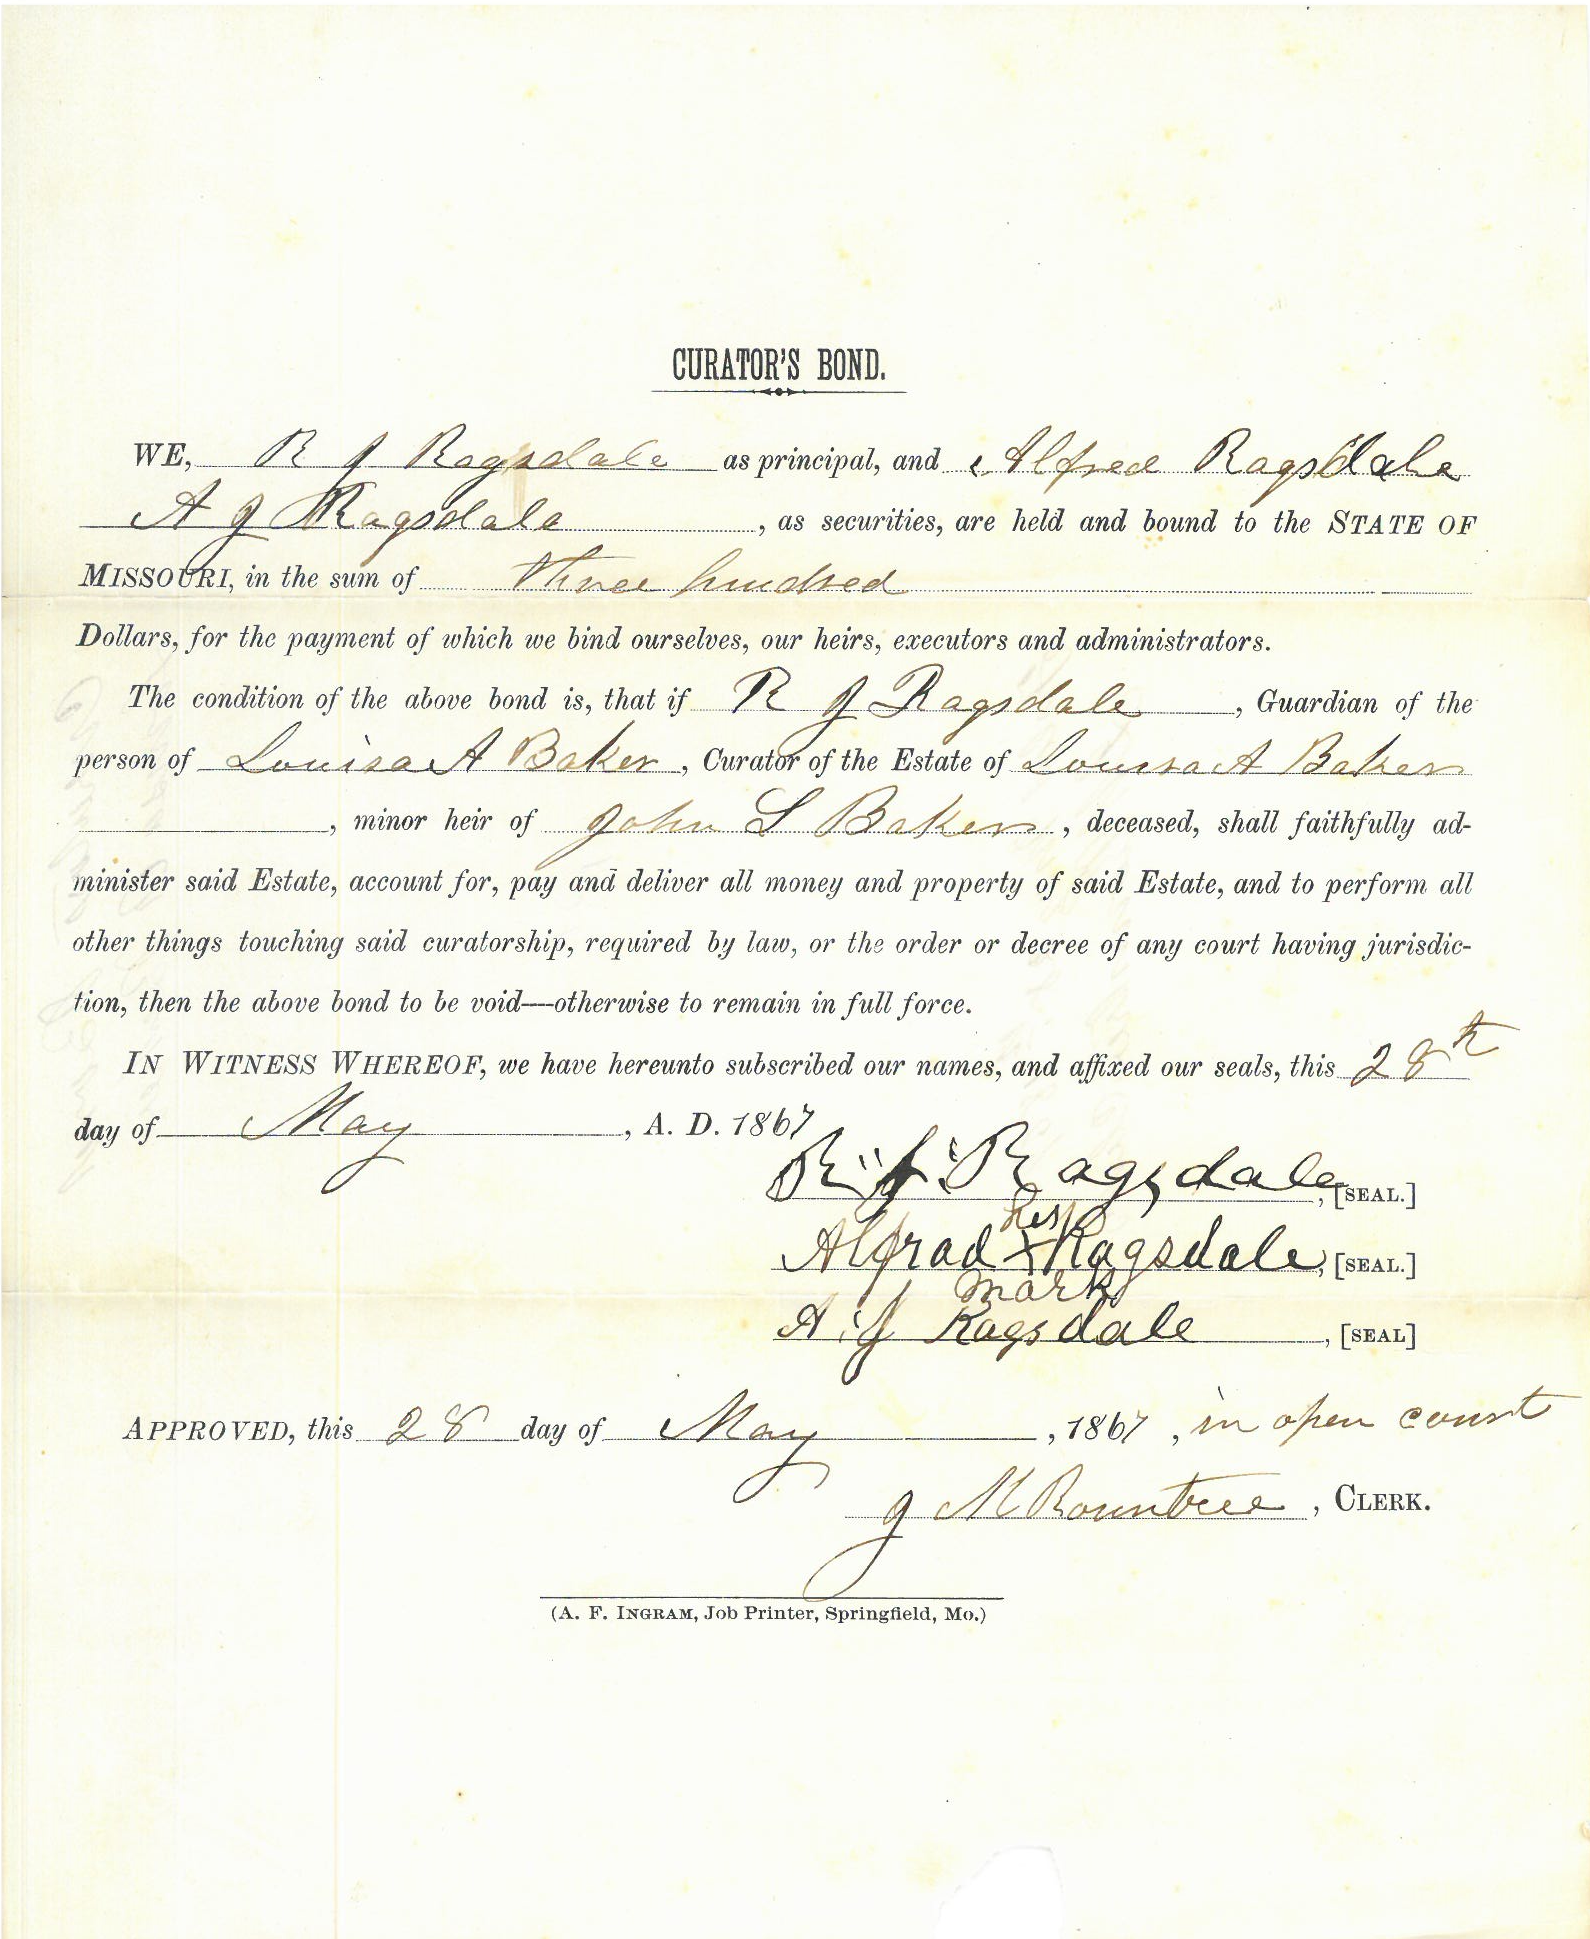 CURATOR'S BOND.
WE, R J Ragsdale as principal, and Alfred Ragsdale
A J Ragsdale, as securities, are held and bound to the STATE OF
MISSOURI, in the sum of three hundred
Dollars, for the payment of which we bind ourselves, our heirs, executors and administrators.
The condition of the above bond is, that if R J Ragsdale, Guardian of the
person of Louisa A Baker, Curator of the Estate of Louisa A Baker
, minor heir of John S Baker, deceased, shall faithfully ad-
minister said Estate, account for, pay and deliver all money and property of said Estate, and to perform all
other things touching said curatorship, required by law, or the order or decree of any court having jurisdic-
tion, then the above bond to be void—otherwise to remain in full force.
IN WITNESS WHEREOF, we have hereunto subscribed our names, and affixed our seals, this 28th
day of May, A. D. 1867
R. J. Ragsdale, [SEAL.]
his
Alfrad X Ragsdale, [SEAL.]
mark
A. J Ragsdale, [SEAL]
APPROVED, this 28 day of May, 1867, in open court
J M Rountree, CLERK.
(A. F. INGRAM, Job Printer, Springfield, Mo.)